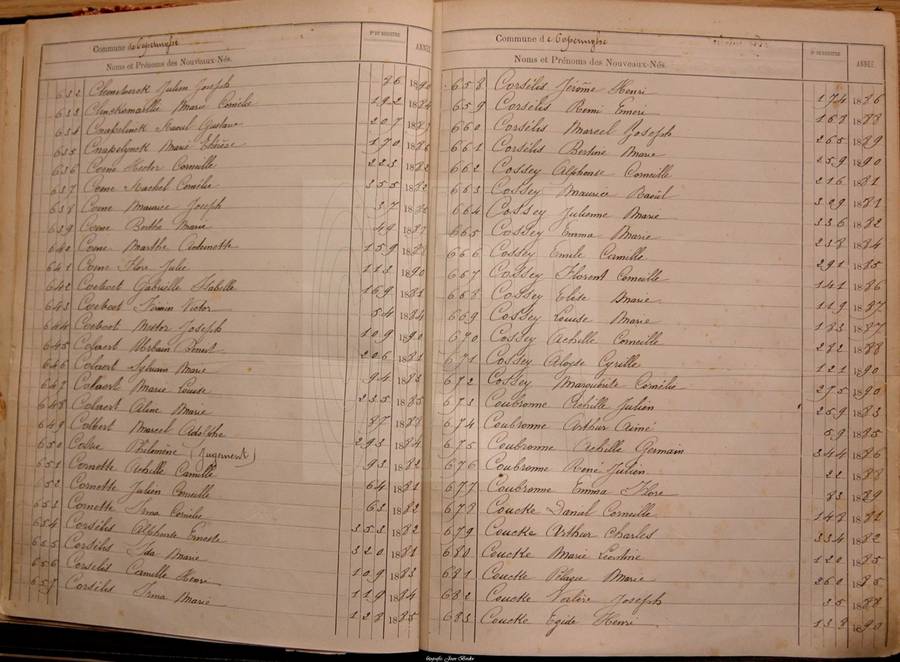 Commune de Poperinghe
Noms et Prénoms des Nouveaux-Nés.
N° DU REGISTRE
ANNÉE
632 Julien Joseph 86 1890
633 Marie Cornélie 192 1884
634 Cnapelinck Raoul Gustave 207 1887
635 Cnapelynck Marie Thérèse 170 1886
636 Coene Hector Corneille 223 1882
637 Coene Rachel Cornélie 355 1882
638 Coene Maurice Joseph 37
639 Coene Bertha Marie 49 1887
640 Coene Marthe Antoinette 159
641 Coene Flore Julie 113 1890
642 Coevoet Gabrielle Isabelle 169 1881
643 Coevoet Firmin Victor 54 1884
644 Coevoet Nestor Joseph 109 1890
645 Colaert Urbain Benoit 206 1881
646 Colaert Sylvain Marie 94 1883
647 Colaert Marie Louise 235 1885
648 Colaert Aline Marie 87 1888
649 Colbert Marcel Adolphe 293 1884
650 Philomène (Jugement) 93 1882
651 Cornette Achille Camille 64 1881
652 Cornette Julien Corneille 63 1882
653 Cornette Irma Cornélie 353 1882
654 Corsélis Alphonse Ernest 320 1881
655 Corsélis Ida Marie 109 1883
656 Corsélis Camille Henri 119 1884
657 Corsélis Irma Marie 128 1885
Commune de Poperinghe
Noms et Prénoms des Nouveaux-Nés.
N° DU REGISTRE
ANNÉE
658 Corsélis Jérôme Henri 174 1886
659 Corsélis Remi Emeri 168 1888
660 Corsélis Marcel Joseph 265 1889
661 Corsélis Bertine Marie 259 1890
662 Cossey Alphonse Corneille 216 1881
663 Cossey Maurice Raoül 329 1881
664 Cossey Julienne Marie 336 1882
665 Cossey Emma Marie 238 1884
666 Cossey Emile Camille 291 1885
667 Cossey Florent Corneille 141 1886
668 Cossey Elise Marie 119 1887
669 Cossey Louise Marie 183 1887
670 Cossey Achille Corneille 282 1888
671 Cossey Aloyse Cyrille 121 1890
672 Cossey Marguerite Cornélie 275 1890
673 Coubronne Achille Julien 259 1883
674 Coubronne Arthur Aimé 59 1885
675 Coubronne Achille Germain 344 1886
676 Coubronne René Julien 22 1888
677 Coubronne Emma Flore 83 1889
678 Coucke Danal Corneille 148 1881
679 Coucke Arthur Charles 334 1882
680 Coucke Marie Léontine 120 1885
681 Coucke Pélagie Marie 260 1885
682 Coucke Valère Joseph 35 1888
683 Coucke Egide Henri 138 1890